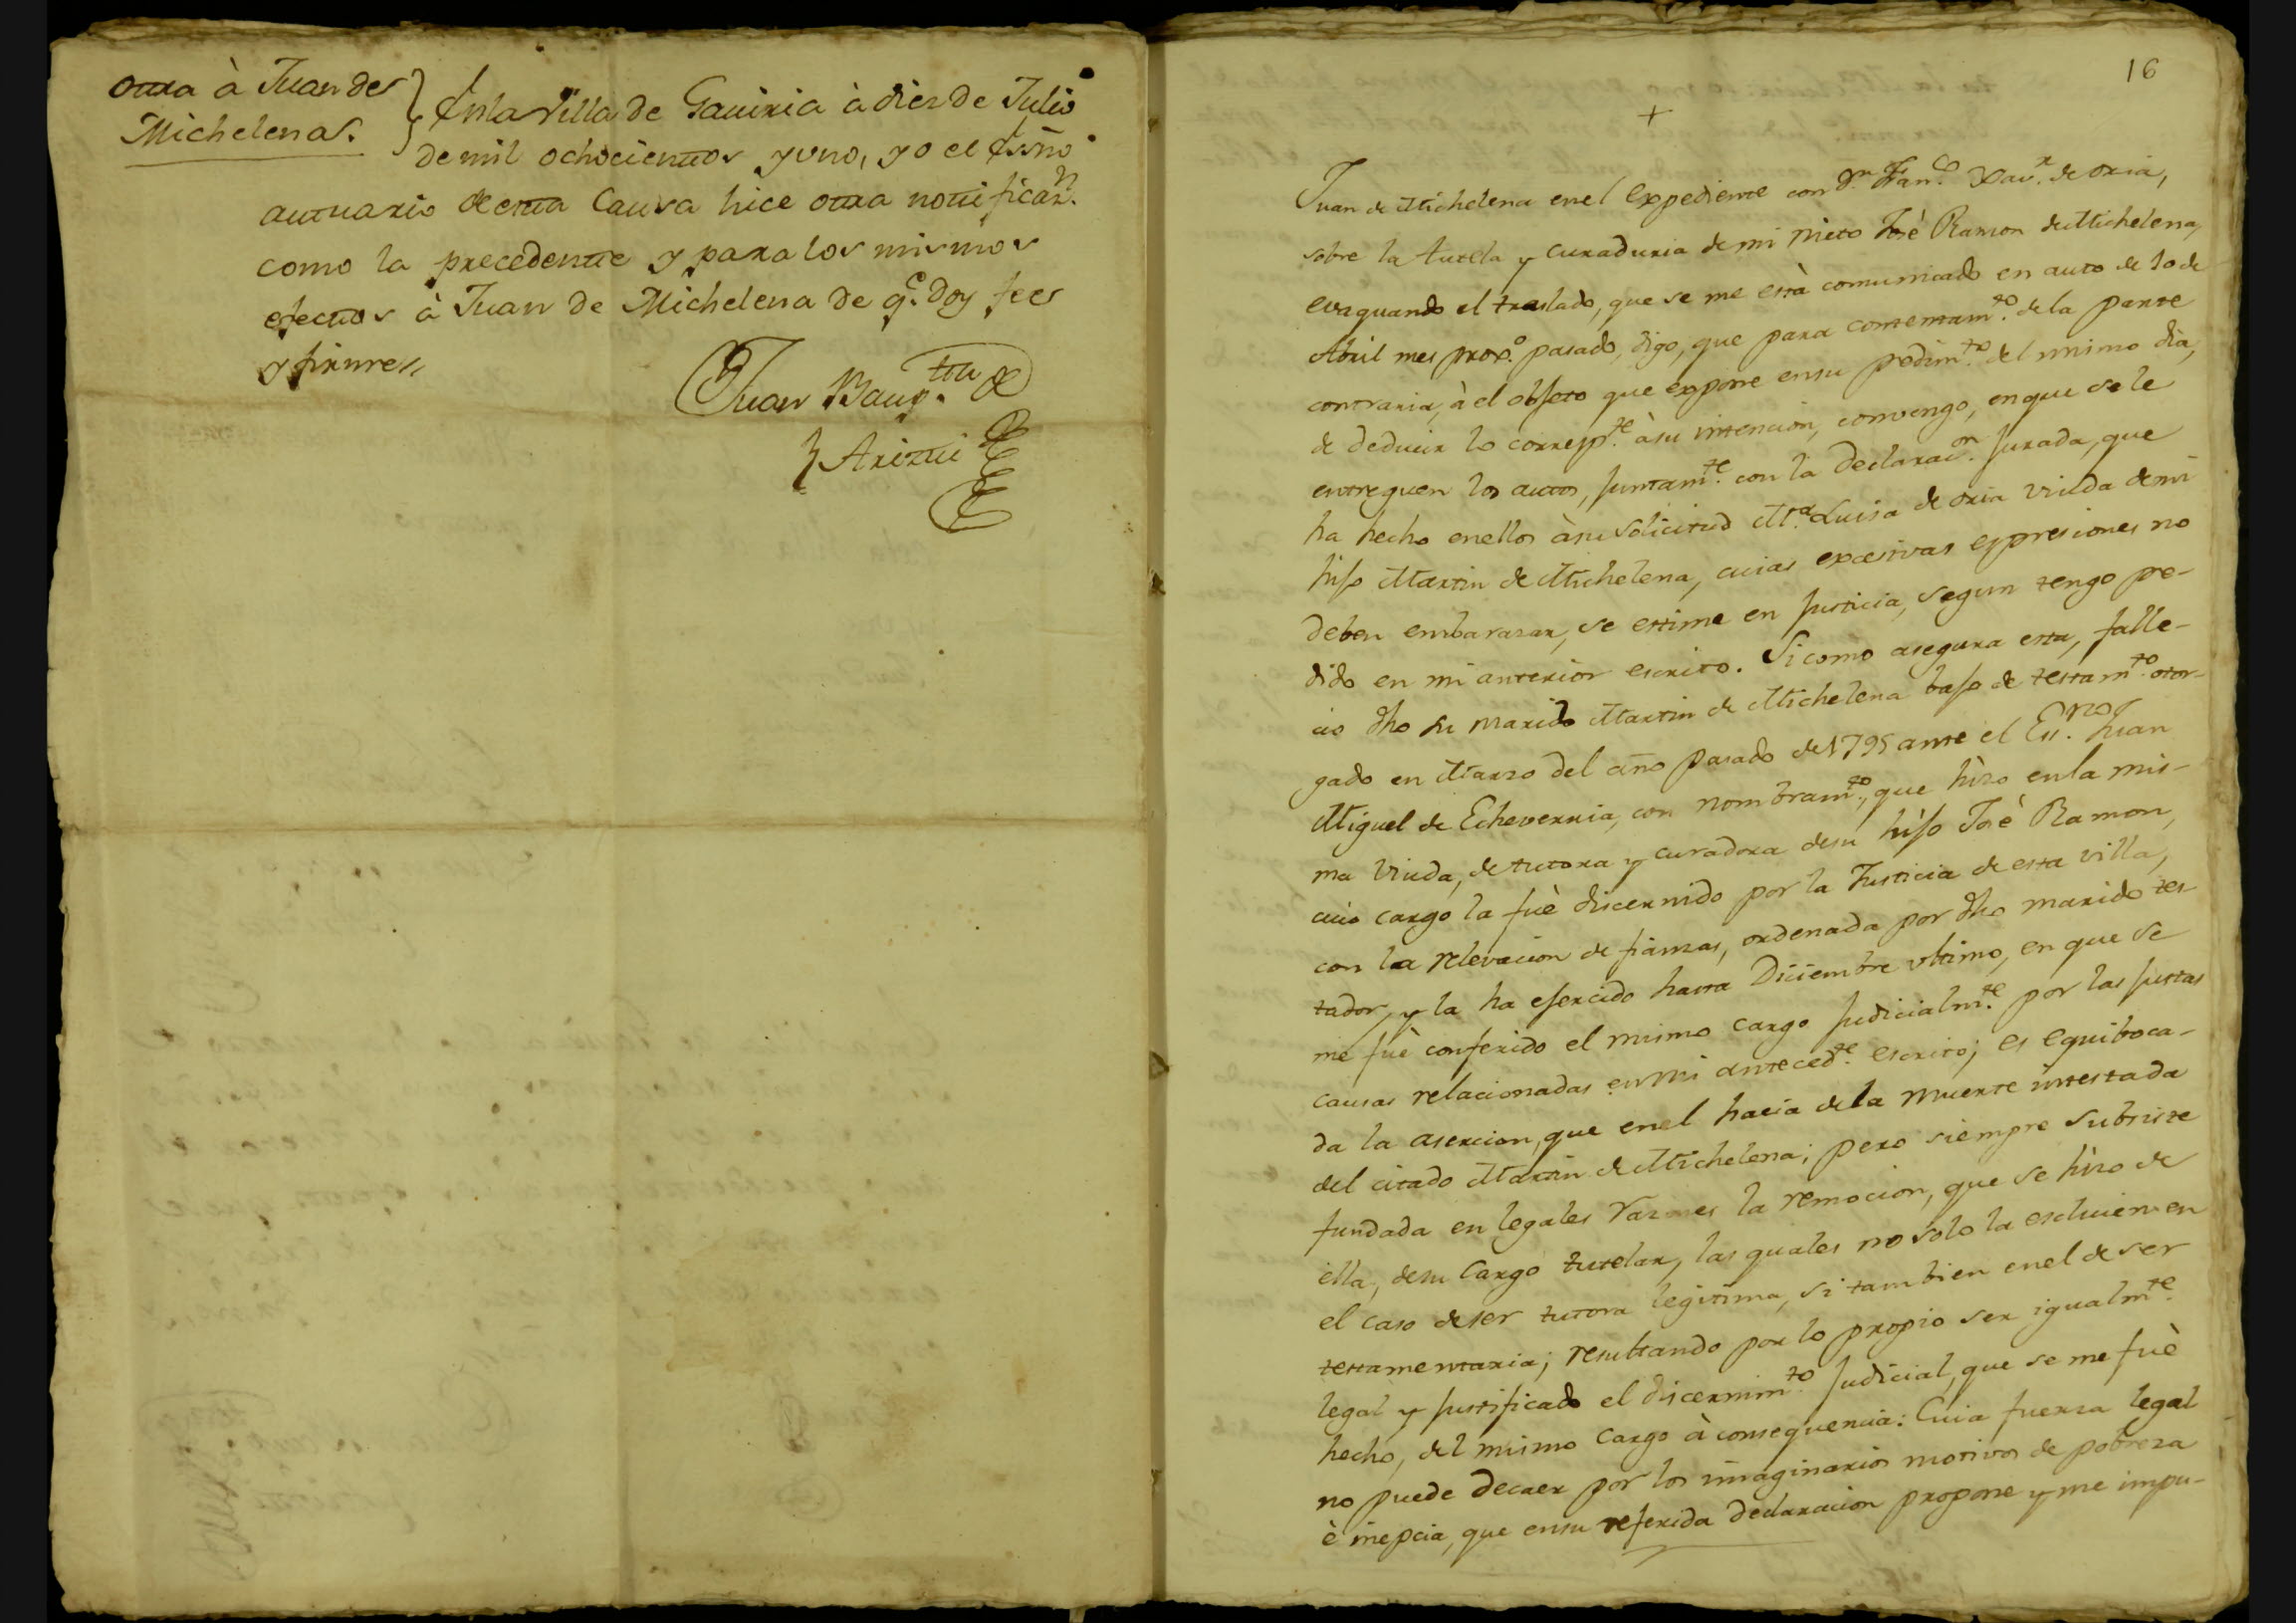 otra à Juan de
Michelena.
En la Villa de Gaviria à diez de Julio
de mil ochocientos y uno, yo el Essño
actuario de esta Causa hice otra notificaz.n
como la precedente y para los mismos
efectos à Juan de Michelena de q.e doy fee
y firmè
Juan Baup.tta de
Arizti
16
Juan de Michelena en el Expediente con D.n Fran.co Xav.r de Oria,
sobre la tutela y curaduria de mi nieto Josè Ramon de Michelena,
evaquando el traslado, que se me està comunicado en auto de 10 de
Abril mes prox.o pasado, digo, que para contentam.to de la parte
contraria, à el objeto que expone en su pedim.to del mismo dia,
de deducir lo corresp.te à su intencion, convengo, en que se le
entreguen los autos, juntam.te con la Declarac.on jurada, que
ha hecho en ellos à su solicitud M.a Luisa de Oria viuda de mi
hijo Martin de Michelena, cuias excesivas expresiones no
deben embarazar, se estime en justicia, segun tengo pe-
dido en mi anterior escrito. Si como asegura esta, falle-
cio dho su marido Martin de Michelena bajo de testam.to otor-
gado en Marzo del año pasado de 1795 ante el Ess.no Juan
Miguel de Echeverria, con nombram.to, que hizo en la mis-
ma viuda, de tutora y curadora de su hijo Josè Ramon,
cuio cargo la fuè discernido por la Justicia de esta villa,
con la relevacion de fianzas, ordenada por dho marido tes-
tador, y la ha ejercido hasta Diciembre ultimo, en que se
me fuè conferido el mismo cargo judicialm.te por las justas
causas relacionadas en mi anteced.te escrito; es equiboca-
da la asercion, que en el hacia de la muerte intestada
del citado Martin de Michelena; pero siempre subsiste
fundada en legales razones la remocion, que se hizo de
ella, de su cargo tutelar, las quales no solo la escluien en
el caso de ser tutora legitima, si tambien en el de ser
testamentaria; resultando por lo propio ser igualm.te
legal y justificado el discernim.to judicial, que se me fuè
hecho, del mismo cargo à consequencia: Cuia fuerza legal
no puede decaer por los imaginarios motivos de pobreza
è inepcia, que en su referida declaracion propone y me impu-